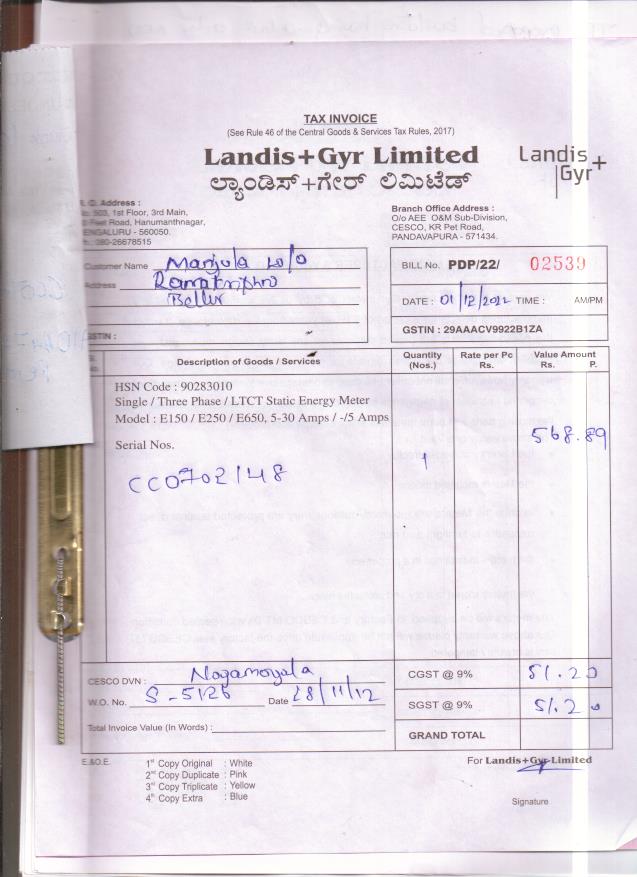 TAX INVOICE
(See Rule 46 of the Central Goods & Services Tax Rules, 2017)
Landis+Gyr Limited
ಲ್ಯಾಂಡಿಸ್+ಗೇರ್ ಲಿಮಿಟೆಡ್
Landis+
Gyr
Address :
503, 1st Floor, 3rd Main,
Feet Road, Hanumanthnagar,
BENGALURU - 560050.
080-26678515
Branch Office Address :
O/o AEE O&M Sub-Division,
CESCO, KR Pet Road,
PANDAVAPURA - 571434.
Customer Name Manjula w/o
Address
Bellur
GSTIN :
BILL No. PDP/22/ 02539
DATE : 01/12/2022 TIME : AM/PM
GSTIN : 29AAACV9922B1ZA
No. Description of Goods / Services Quantity (Nos.) Rate per Pc Rs. Value Amount Rs. P.
HSN Code : 90283010
Single / Three Phase / LTCT Static Energy Meter
Model : E150 / E250 / E650, 5-30 Amps / -/5 Amps
Serial Nos. 568.89
CC0702148 1
CESCO DVN : Nagamangala
W.O. No. S-5126 Date 28/11/12
Total Invoice Value (In Words) :
CGST @ 9% 51.20
SGST @ 9% 51.20
GRAND TOTAL
E.&O.E.
1st Copy Original : White
2nd Copy Duplicate : Pink
3rd Copy Triplicate : Yellow
4th Copy Extra : Blue
For Landis+Gyr Limited
Signature